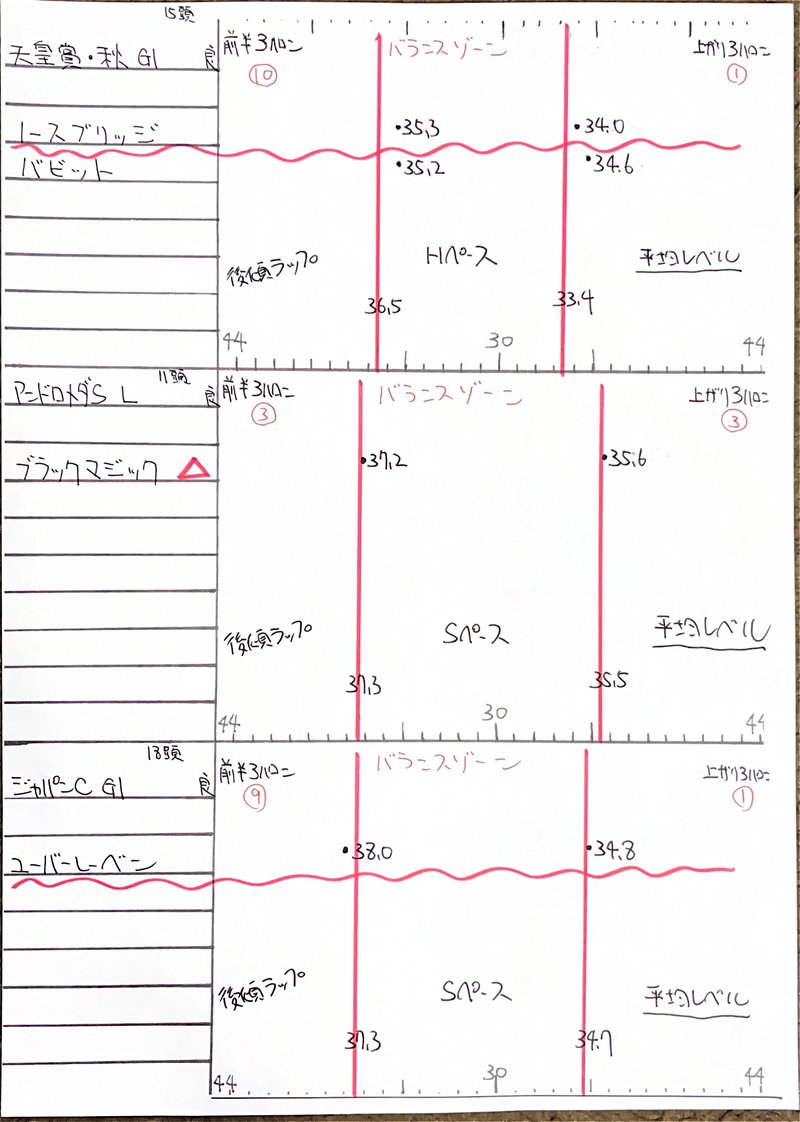 15頭
天皇賞・秋 GI 良 前半3ハロン バランスゾーン 上がり3ハロン
⑩ ①
ノースブリッジ ・35,3 ・34.0
バビット ・35,2 ・34.6
後傾ラップ Hペース 平均レベル
36,5 33.4
44 30 44
11頭
アンドロメダS L 良 前半3ハロン バランスゾーン 上がり3ハロン
③ ③
ブラックマジック △ ・37,2 ・35.6
後傾ラップ Sペース 平均レベル
37,3 35,5
44 30 44
18頭
ジャパンC GI 良 前半3ハロン バランスゾーン 上がり3ハロン
⑨ ①
ユーバーレーベン ・38.0 ・34.8
後傾ラップ Sペース 平均レベル
37,3 34.7
44 30 44